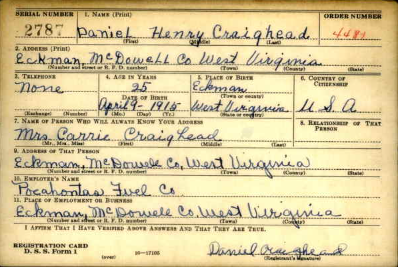 SERIAL NUMBER 1. NAME (Print) ORDER NUMBER
2787 Daniel Henry Craighead 4481
(First) (Middle) (Last)
2. ADDRESS (Print)
Eckman, McDowell Co West Virginia
(Number and street or R. F. D. number) (Town) (County) (State)
3. TELEPHONE 4. AGE IN YEARS 5. PLACE OF BIRTH 6. COUNTRY OF CITIZENSHIP
None 25 Eckman
(Town or county)
DATE OF BIRTH
April 9- 1915 West Virginia U S A
(Exchange) (Number) (Mo.) (Day) (Yr.) (State or country)
7. NAME OF PERSON WHO WILL ALWAYS KNOW YOUR ADDRESS 8. RELATIONSHIP OF THAT PERSON
Mrs Carrie Craighead
(Mr., Mrs., Miss) (First) (Middle) (Last)
9. ADDRESS OF THAT PERSON
Eckman, McDowell Co, West Virginia
(Number and street or R. F. D. number) (Town) (County) (State)
10. EMPLOYER'S NAME
Pocahontas Fuel Co
11. PLACE OF EMPLOYMENT OR BUSINESS
Eckman, McDowell Co. West Virginia
(Number and street or R. F. D. number) (Town) (County) (State)
I AFFIRM THAT I HAVE VERIFIED ABOVE ANSWERS AND THAT THEY ARE TRUE.
REGISTRATION CARD
D. S. S. Form 1 (over) 16—17105 Daniel Craighead
(Registrant's signature)